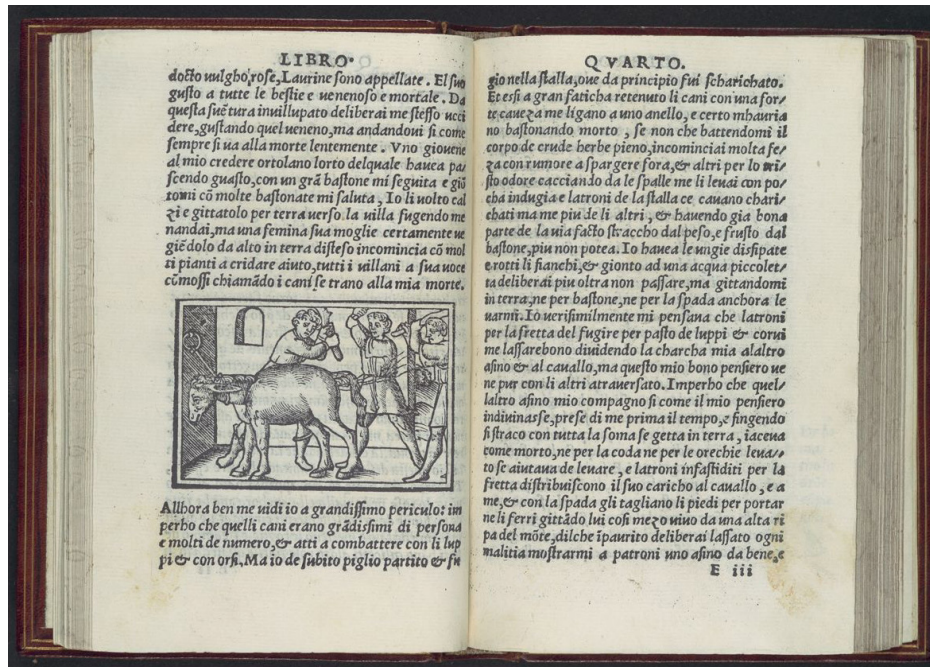 LIBRO·
docto uulgho, rose, Laurine sono appellate. El suo
gusto a tutte le bestie e uenenoso e mortale. Da
questa suētura inuillupato deliberai me stesso ucci
dere, gustando quel ueneno, ma andandoui si come
sempre si ua alla morte lentemente. Vno giouene
al mio credere ortolano lorto delquale hauea pa/
scendo guasto, con un grā bastone mi seguita e giō
tomi cō molte bastonate mi saluta, Io li uolto cal
zi e gittatolo per terra uerso la uilla fugendo me
nandai, ma una femina sua moglie certamente ue
giēdolo da alto in terra disteso incomincia cō mol
ti pianti a cridare aiuto, tutti i uillani a sua uoce
cōmossi chiamādo i cani se trano alla mia morte.
Allhora ben me uidi io a grandissimo periculo: im
perho che quelli cani erano grādissimi di persona
e molti de numero, & atti a combattere con li lup
pi & con orsi. Ma io de subito piglio partito & fu
QVARTO.
gio nella stalla, oue da principio fui scharichato.
Et essi a gran faticha retenuto li cani con una for/
te caueza me ligano a uno anello, e certo mhauria
no bastonando morto, se non che battendomi il
corpo de crude herbe pieno, incominciai molta fe/
za con rumore a spargere fora, & altri per lo tri/
sto odore cacciando da le spalle me li leuai con po/
cha indugia e latroni de la stalla ce cauano chari/
chati ma me piu de li altri, & hauendo gia bona
parte de la uia facto straccho dal peso, e frusto dal
bastone, piu non potea. Io hauea le ungie dissipate
e rotti li fianchi, & gionto ad una acqua piccolet/
ta deliberai piu oltra non passare, ma gittandomi
in terra, ne per bastone, ne per la spada anchora le
uarmi. Io uerisimilmente mi pensaua che latroni
per la fretta del fugire per pasto de luppi & corui
me lassarebono diuidendo la charcha mia alaltro
asino & al cauallo, ma questo mio bono pensiero ue
ne pur con li altri atrauersato. Imperho che quel/
laltro asino mio compagno si come il mio pensiero
indiuinasse, prese di me prima il tempo, e fingendo
si straco con tutta la soma se getta in terra, iaceua
come morto, ne per la coda ne per le orechie leua/
to se aiutaua de leuare, e latroni infastiditi per la
fretta distribuiscono il suo caricho al cauallo, e a
me, & con la spada gli tagliano li piedi per portar
ne li ferri gittādo lui cosi mezo uiuo da una alta ri
pa del mōte, dilche īpaurito deliberai lassato ogni
malitia mostrarmi a patroni uno asino da bene, e
E iii